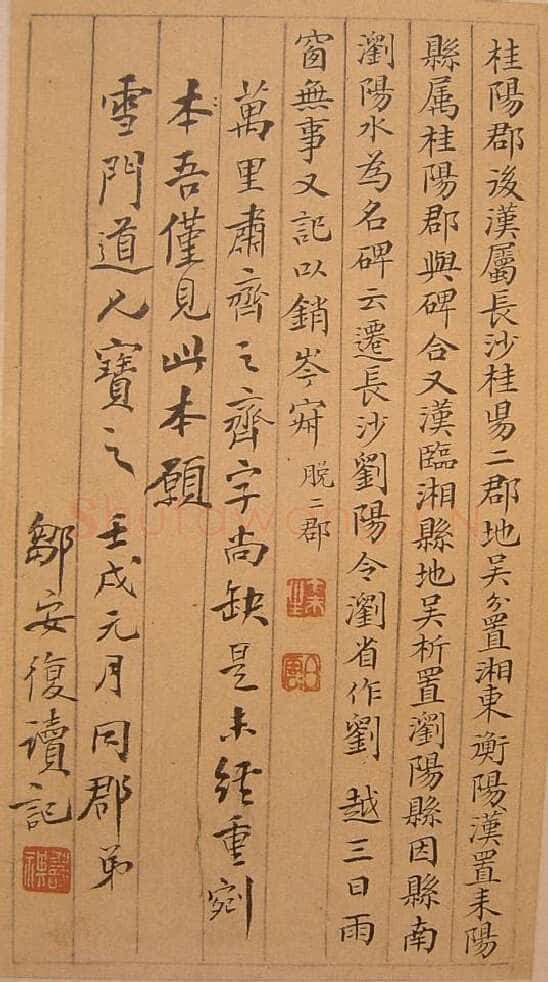 桂陽郡後漢屬長沙桂陽二郡地吴分置湘東衡陽漢置耒陽
縣属桂陽郡與碑合又漢臨湘縣地吴析置瀏陽縣因縣南
瀏陽水為名碑云遷長沙劉陽令瀏省作劉 越三日雨
窗無事又記以銷岑寂 脫二郡
萬里肅齊之齊字尚缺是未經重剜
本吾僅見此本願
雪門道兄寶之 壬戌元月同郡弟
鄒安復讀記